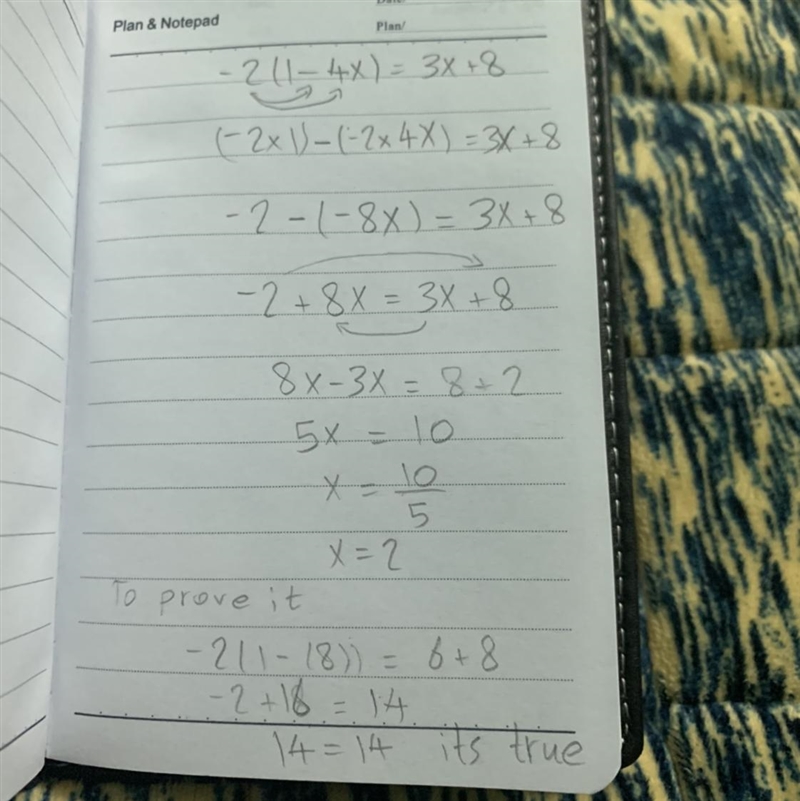 Plan & Notepad
Plan/
-2(1-4x) = 3x+8
(-2x1)-(-2x4x) = 3x+8
-2-(-8x) = 3x+8
-2+8x = 3x+8
8x-3x = 8+2
5x = 10
x = 10/5
x=2
To prove it
-2(1-(8)) = 6+8
-2+16 = 14
14=14 its true